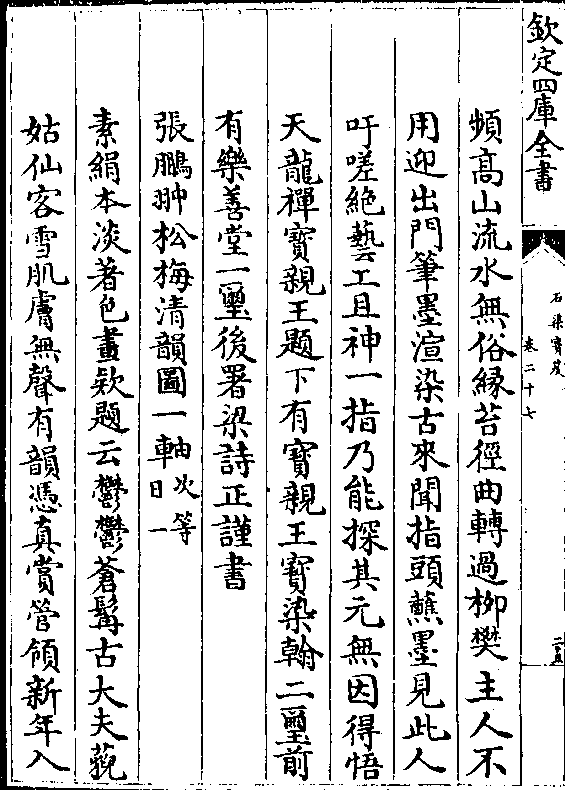 欽定四庫全書
石渠寶笈
卷二十七
頻高山流水無俗縁苔徑曲轉過栁樊主人不
用迎出門筆墨渲染古來聞指頭蘸墨見此人
吁嗟絶藝工且神一指乃能探其元無因得悟
天龍禪寳親王題下有寳親王寳染翰二璽前
有樂善堂一璽後署梁詩正謹書
張鵬翀松梅清韻圖一軸次等日一
素絹本淡著色畫欵題云鬱鬱蒼髯古大夫藐
姑仙客雪肌膚無聲有韻憑真賞管領新年入